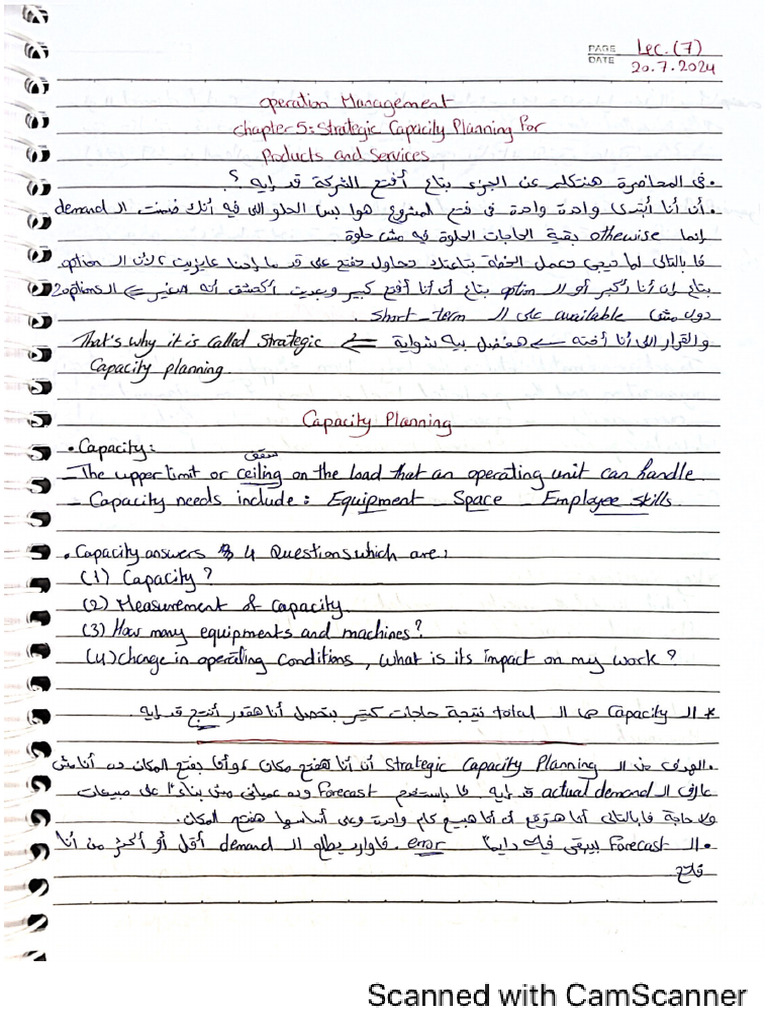 PAGE Lec. (7)
DATE 20.7.2024
operation Management
chapter 5: Strategic Capacity Planning For
Products and Services
• فى المحاضرة هنتكلم عن الجزء بتاع أفتح الشركة قد إيه ؟
• أن أنا أبتدى واحدة واحدة فى فتح المشروع هوا بس الحلو اللى فيه أنك ضمنت الـ demand
إنما otherwise بقية الحاجات الحلوة فيه مش حلوة.
فا بالتالى لما تيجى تعمل الخطة بتاعتك تحاول تفتح على قد ما إحنا عايزين، لأن الـ option
بتاع إن أنا أكبر أو الـ option بتاع أن أنا أفتح كبير وبعدين أكتشف أنه صغير ⇐ الـ 2 options
دول مش available على الـ short-term.
والقرار اللى أنا أخدته هفضل بيه شوية ⇐ That's why it is called Strategic
Capacity planning.
Capacity Planning
• Capacity:
سقف
- The upper limit or ceiling on the load that an operating unit can handle.
- Capacity needs include: Equipment - Space - Employee skills.
• Capacity answers 4 Questions which are:
(1) Capacity?
(2) Measurement of capacity.
(3) How many equipments and machines?
(4) change in operating conditions, what is its impact on my work?
* الـ Capacity هى الـ total نتيجة حاجات كتير بتحصل أنا هقدر أنتج قد إيه.
• الهدف من الـ Strategic Capacity Planning أن أنا هفتح مكان، وأما بفتح المكان ده أنا مش
عارف الـ actual demand قد إيه. فا باستخدم Forecast وده عميانى مش بناءً على مبيعات
ولا حاجة فا بالتالى أنا هتوقع أن أنا هبيع كام واحدة وعلى أساسها هفتح المكان.
• الـ Forecast بيبقى فيه دايماً error. فا وارد يطلع الـ demand أقل أو أكتر من أنا
فاتح
Scanned with CamScanner